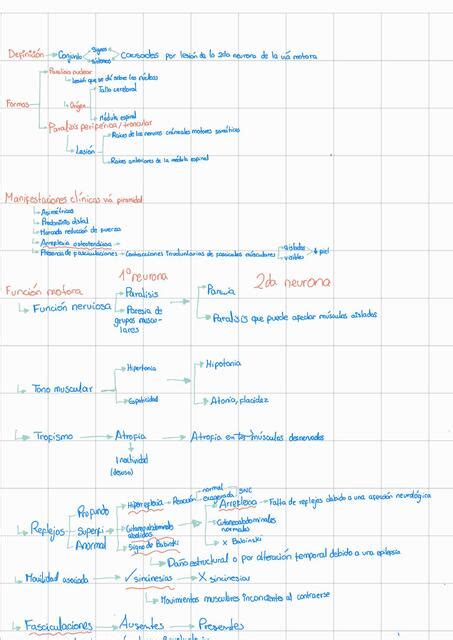 Definición → Conjunto → Signos
Síntomas → causados por lesión de la 2da neurona de la vía motora
Formas
Paralisis nuclear
Lesión que se da sobre los núcleos
Origen
Tallo cerebral
Médula espinal
Paralisis periferica/troncular
Lesión
Raices de los nervios craneales motores somáticos
Raices anteriores de la médula espinal
Manifestaciones clínicas vía piramidal
Asimétricas
Predominio distal
Marcada reducción de fuerza
Arreflexia osteotendinosa →
Presencia de fasciculaciones → Contracciones involuntarias de fasciculos musculares → aislados
visibles → piel
1° neurona
2da neurona
Función motora
Función nerviosa
Paralisis
Paresia de
grupos muscu-
lares
Paresia
Paralisis que puede afectar músculos aislados
Tono muscular
Hipertonia
Espaticidad
Hipotonia
Atonia, flacidez
Tropismo → Atrofia → Atrofia en músculos desnervados
Inactividad
(desuso)
Reflejos
Profundo
Hiperreflexia → Reacción
normal
exagerada
SNC
Arreflexia → Falta de reflejos debido a una afección neurológica
Superfi
Cutaneoabdominales
abolidos
Cutaneoabdominales
normales
Anormal
Signo de Babinski
X Babinski
Daño estructural o por alteración temporal debido a una epilepsia
Movilidad asociada → ✓ sincinesias → X sincinesias
Movimientos musculares inconcientes al contraerse
Fasciculaciones → Ausentes → Presentes